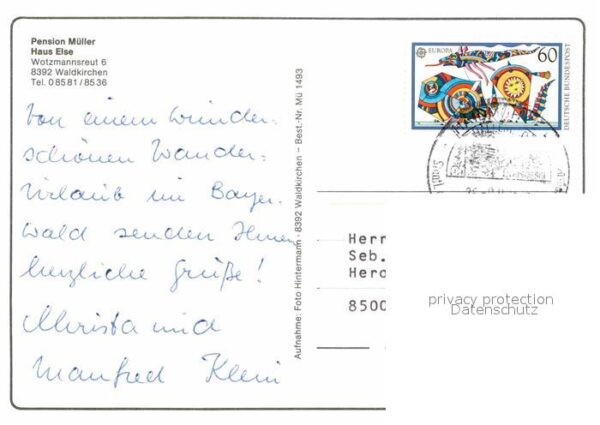 Pension Müller
Haus Else
Wotzmannsreut 6
8392 Waldkirchen
Tel. 08581/8536
Von einem wunder-
schönen Wander-
urlaub im Bayer.
Wald senden Ihnen
herzliche Grüße!
Christa und
Manfred Klein
Aufnahme: Foto Hintermann · 8392 Waldkirchen – Best.-Nr. Mü 1493
EUROPA
60
DEUTSCHE BUNDESPOST
Herr
Seb.
Hero
8500
privacy protection
Datenschutz